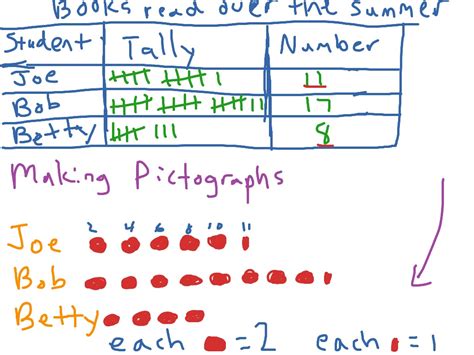 Books read over the summer
Student Tally Number
Joe 11
Bob 17
Betty 8
Making Pictographs
2 4 6 8 10 11
Joe
Bob
Betty
each = 2 each = 1